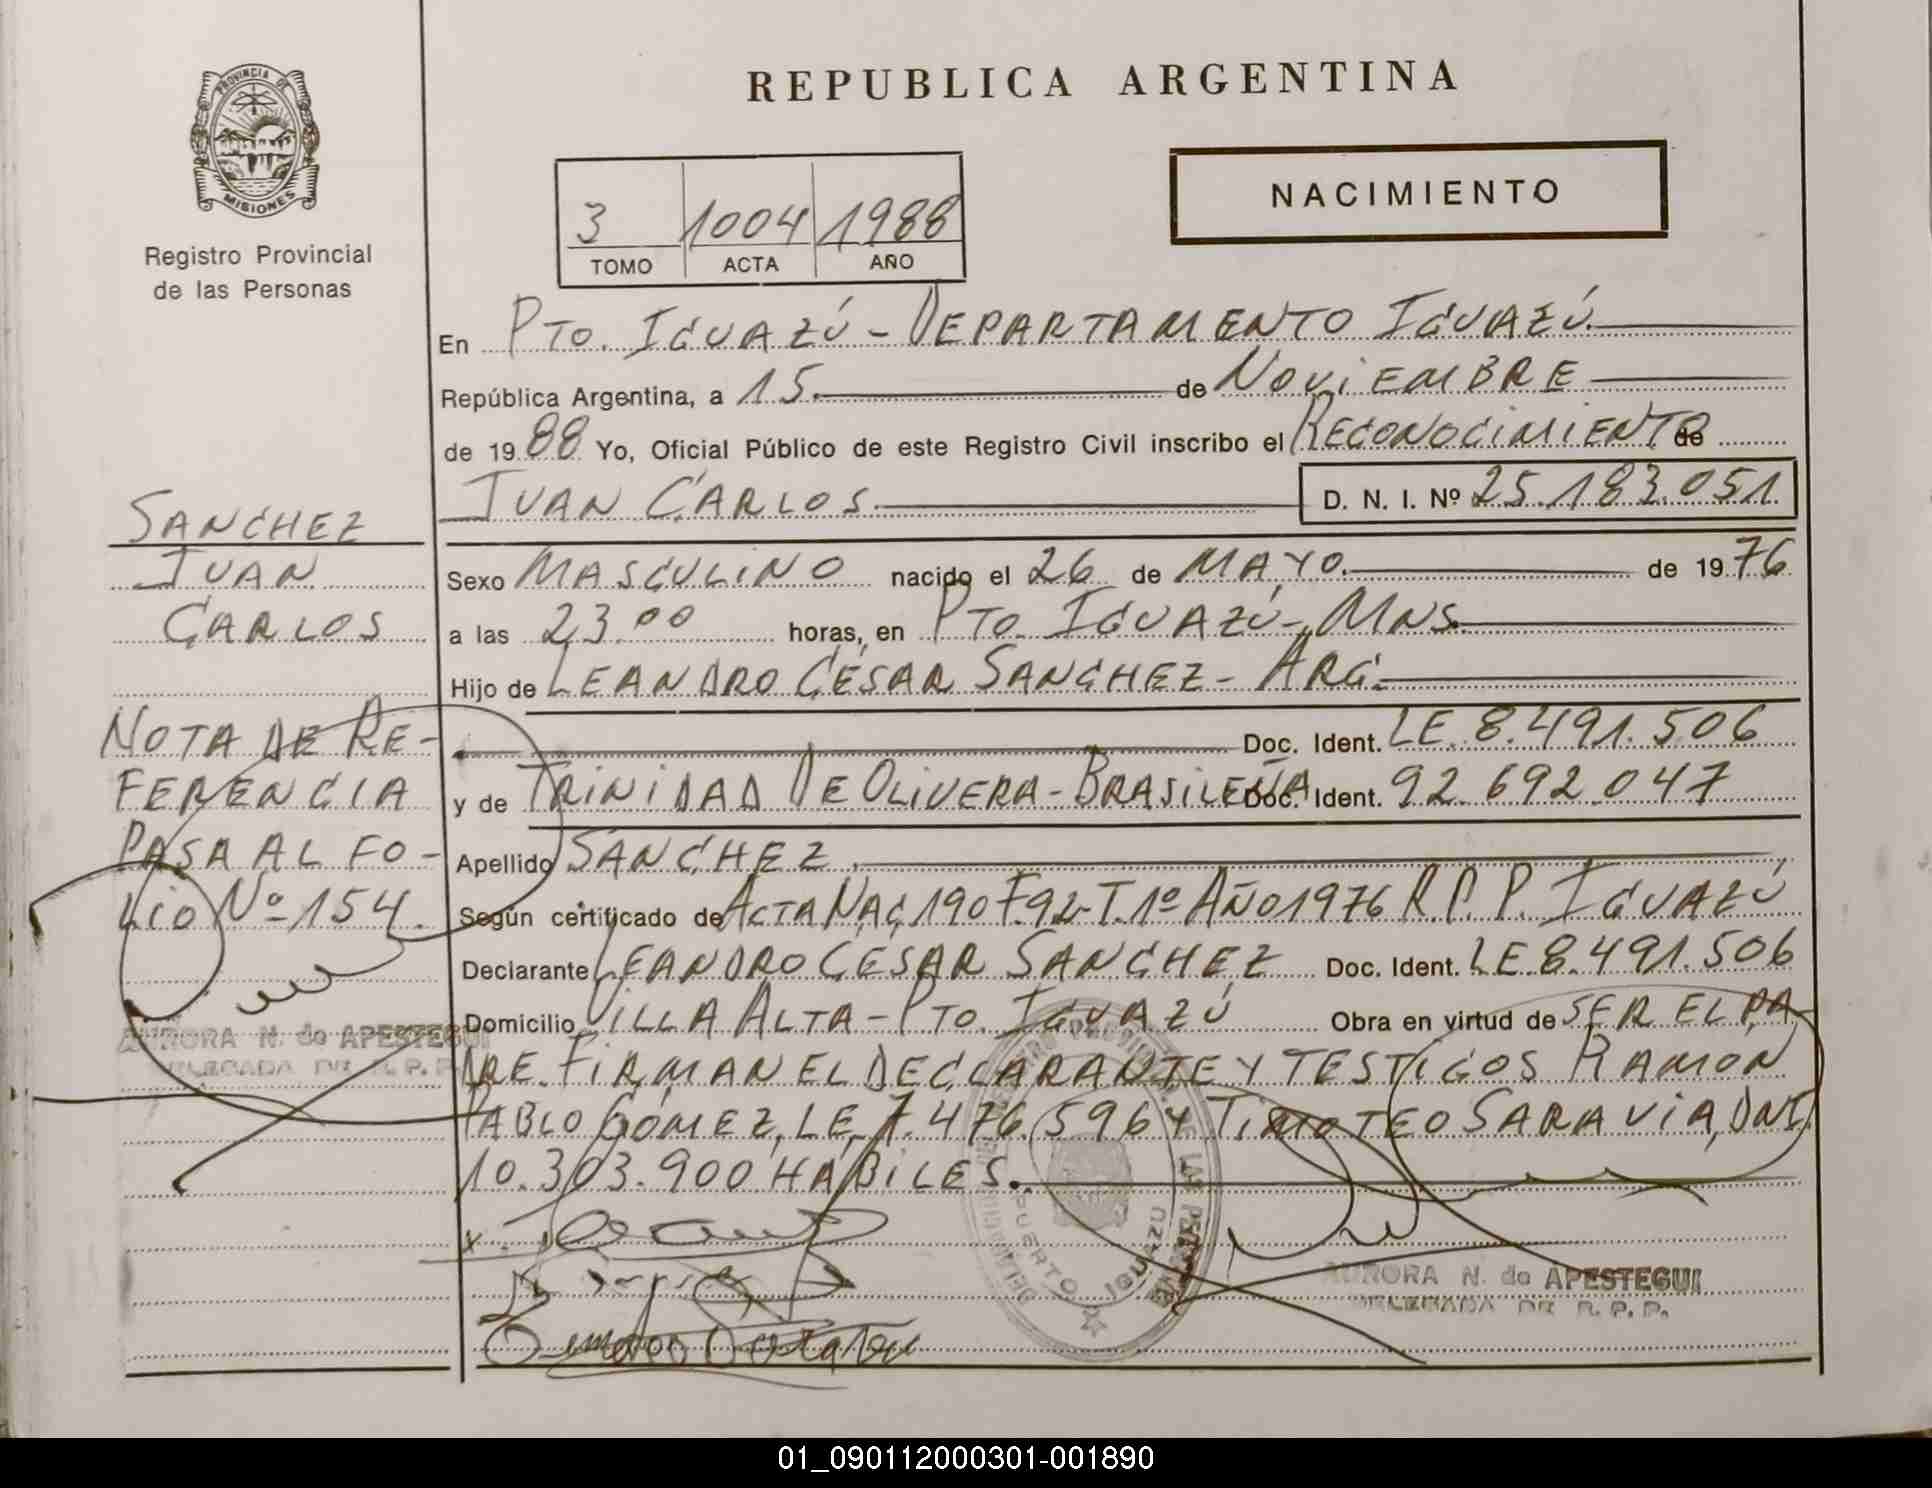 PROVINCIA DE
MISIONES
Registro Provincial
de las Personas
REPUBLICA ARGENTINA
NACIMIENTO
3 1004 1988
TOMO ACTA AÑO
En PTO. IGUAZÚ - DEPARTAMENTO IGUAZÚ
República Argentina, a 15. de NOVIEMBRE
de 1988 Yo, Oficial Público de este Registro Civil inscribo el RECONOCIMIENTO de
JUAN CARLOS D. N. I. Nº 25.183.051
SANCHEZ
JUAN
CARLOS
NOTA DE RE-
FERENCIA
PASA AL FO-
LIO Nº 154.
AURORA N. de APESTEGUI
DELEGADA DE R. P. P.
Sexo MASCULINO nacido el 26 de MAYO. de 1976
a las 23.00 horas, en PTO. IGUAZÚ - MNS.
Hijo de LEANDRO CÉSAR SANCHEZ - ARG.
Doc. Ident. LE. 8.491.506
y de TRINIDAD DE OLIVERA - BRASILEÑA Doc. Ident. 92.692.047
Apellido SANCHEZ.
Según certificado de ACTA NAC. 190 F. 92 - T. 1º AÑO 1976 R.P.P. IGUAZÚ
Declarante LEANDRO CÉSAR SANCHEZ Doc. Ident. LE 8.491.506
Domicilio VILLA ALTA - PTO. IGUAZÚ Obra en virtud de SER EL PA
DRE. FIRMAN EL DECLARANTE Y TESTIGOS RAMON
PABLO GÓMEZ, LE. 7.476.596 Y TIMOTEO SARAVIA, DNI
10.303.900 HÁBILES.
PUERTO IGUAZU
AURORA N. de APESTEGUI
DELEGADA DE R. P. P.
01_090112000301-001890